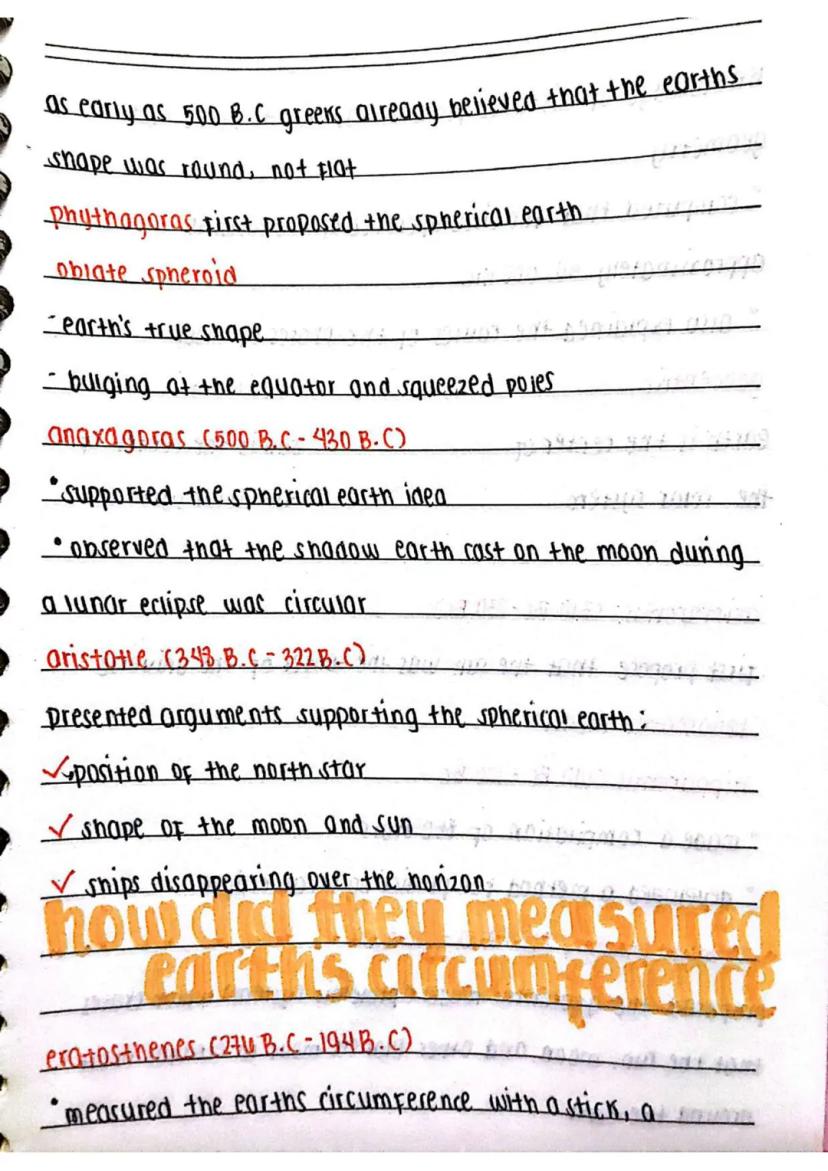 as early as 500 B.C greeks already believed that the earths
shape was round, not flat
phythagoras first proposed the spherical earth
oblate spheroid
- earth's true shape
- bulging at the equator and squeezed poles
anaxagoras (500 B.C - 430 B.C)
• supported the spherical earth idea
• observed that the shadow earth cast on the moon during
a lunar eclipse was circular
aristotle (343 B.C - 322 B.C)
presented arguments supporting the spherical earth:
✓ position of the north star
✓ shape of the moon and sun
✓ ships disappearing over the horizon
how did they measured
earths circumference
eratosthenes (276 B.C - 194 B.C)
• measured the earths circumference with a stick, a